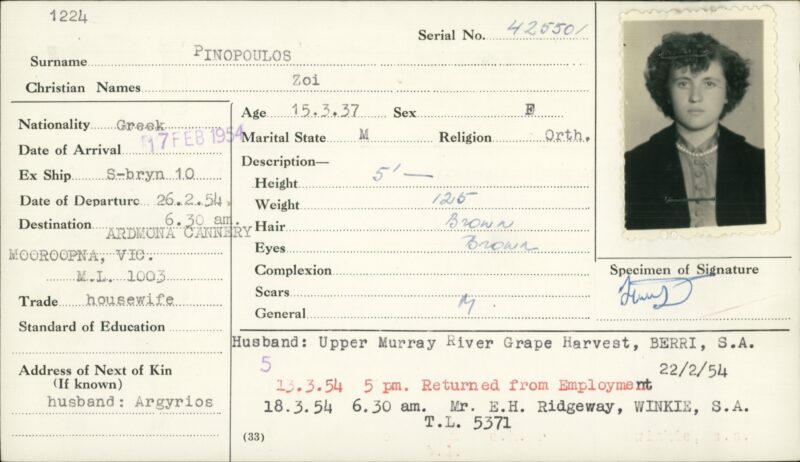 1224
Serial No. 42550/
Surname PINOPOULOS
Christian Names Zoi
Nationality Greek
Date of Arrival 17 FEB 1954
Ex Ship S-bryn 10
Date of Departure 26.2.54.
Destination 6.30 am.
ARDMONA CANNERY
MOOROOPNA, VIC.
M.L. 1003
Trade housewife
Standard of Education
Address of Next of Kin
(If known)
husband: Argyrios
Age 15.3.37 Sex F
Marital State M Religion Orth.
Description—
Height 5'—
Weight 125
Hair Brown
Eyes Brown
Complexion
Scars
General M
Specimen of Signature
Husband: Upper Murray River Grape Harvest, BERRI, S.A.
5 22/2/54
13.3.54 5 pm. Returned from Employment
18.3.54 6.30 am. Mr. E.H. Ridgeway, WINKIE, S.A.
T.L. 5371
(33)